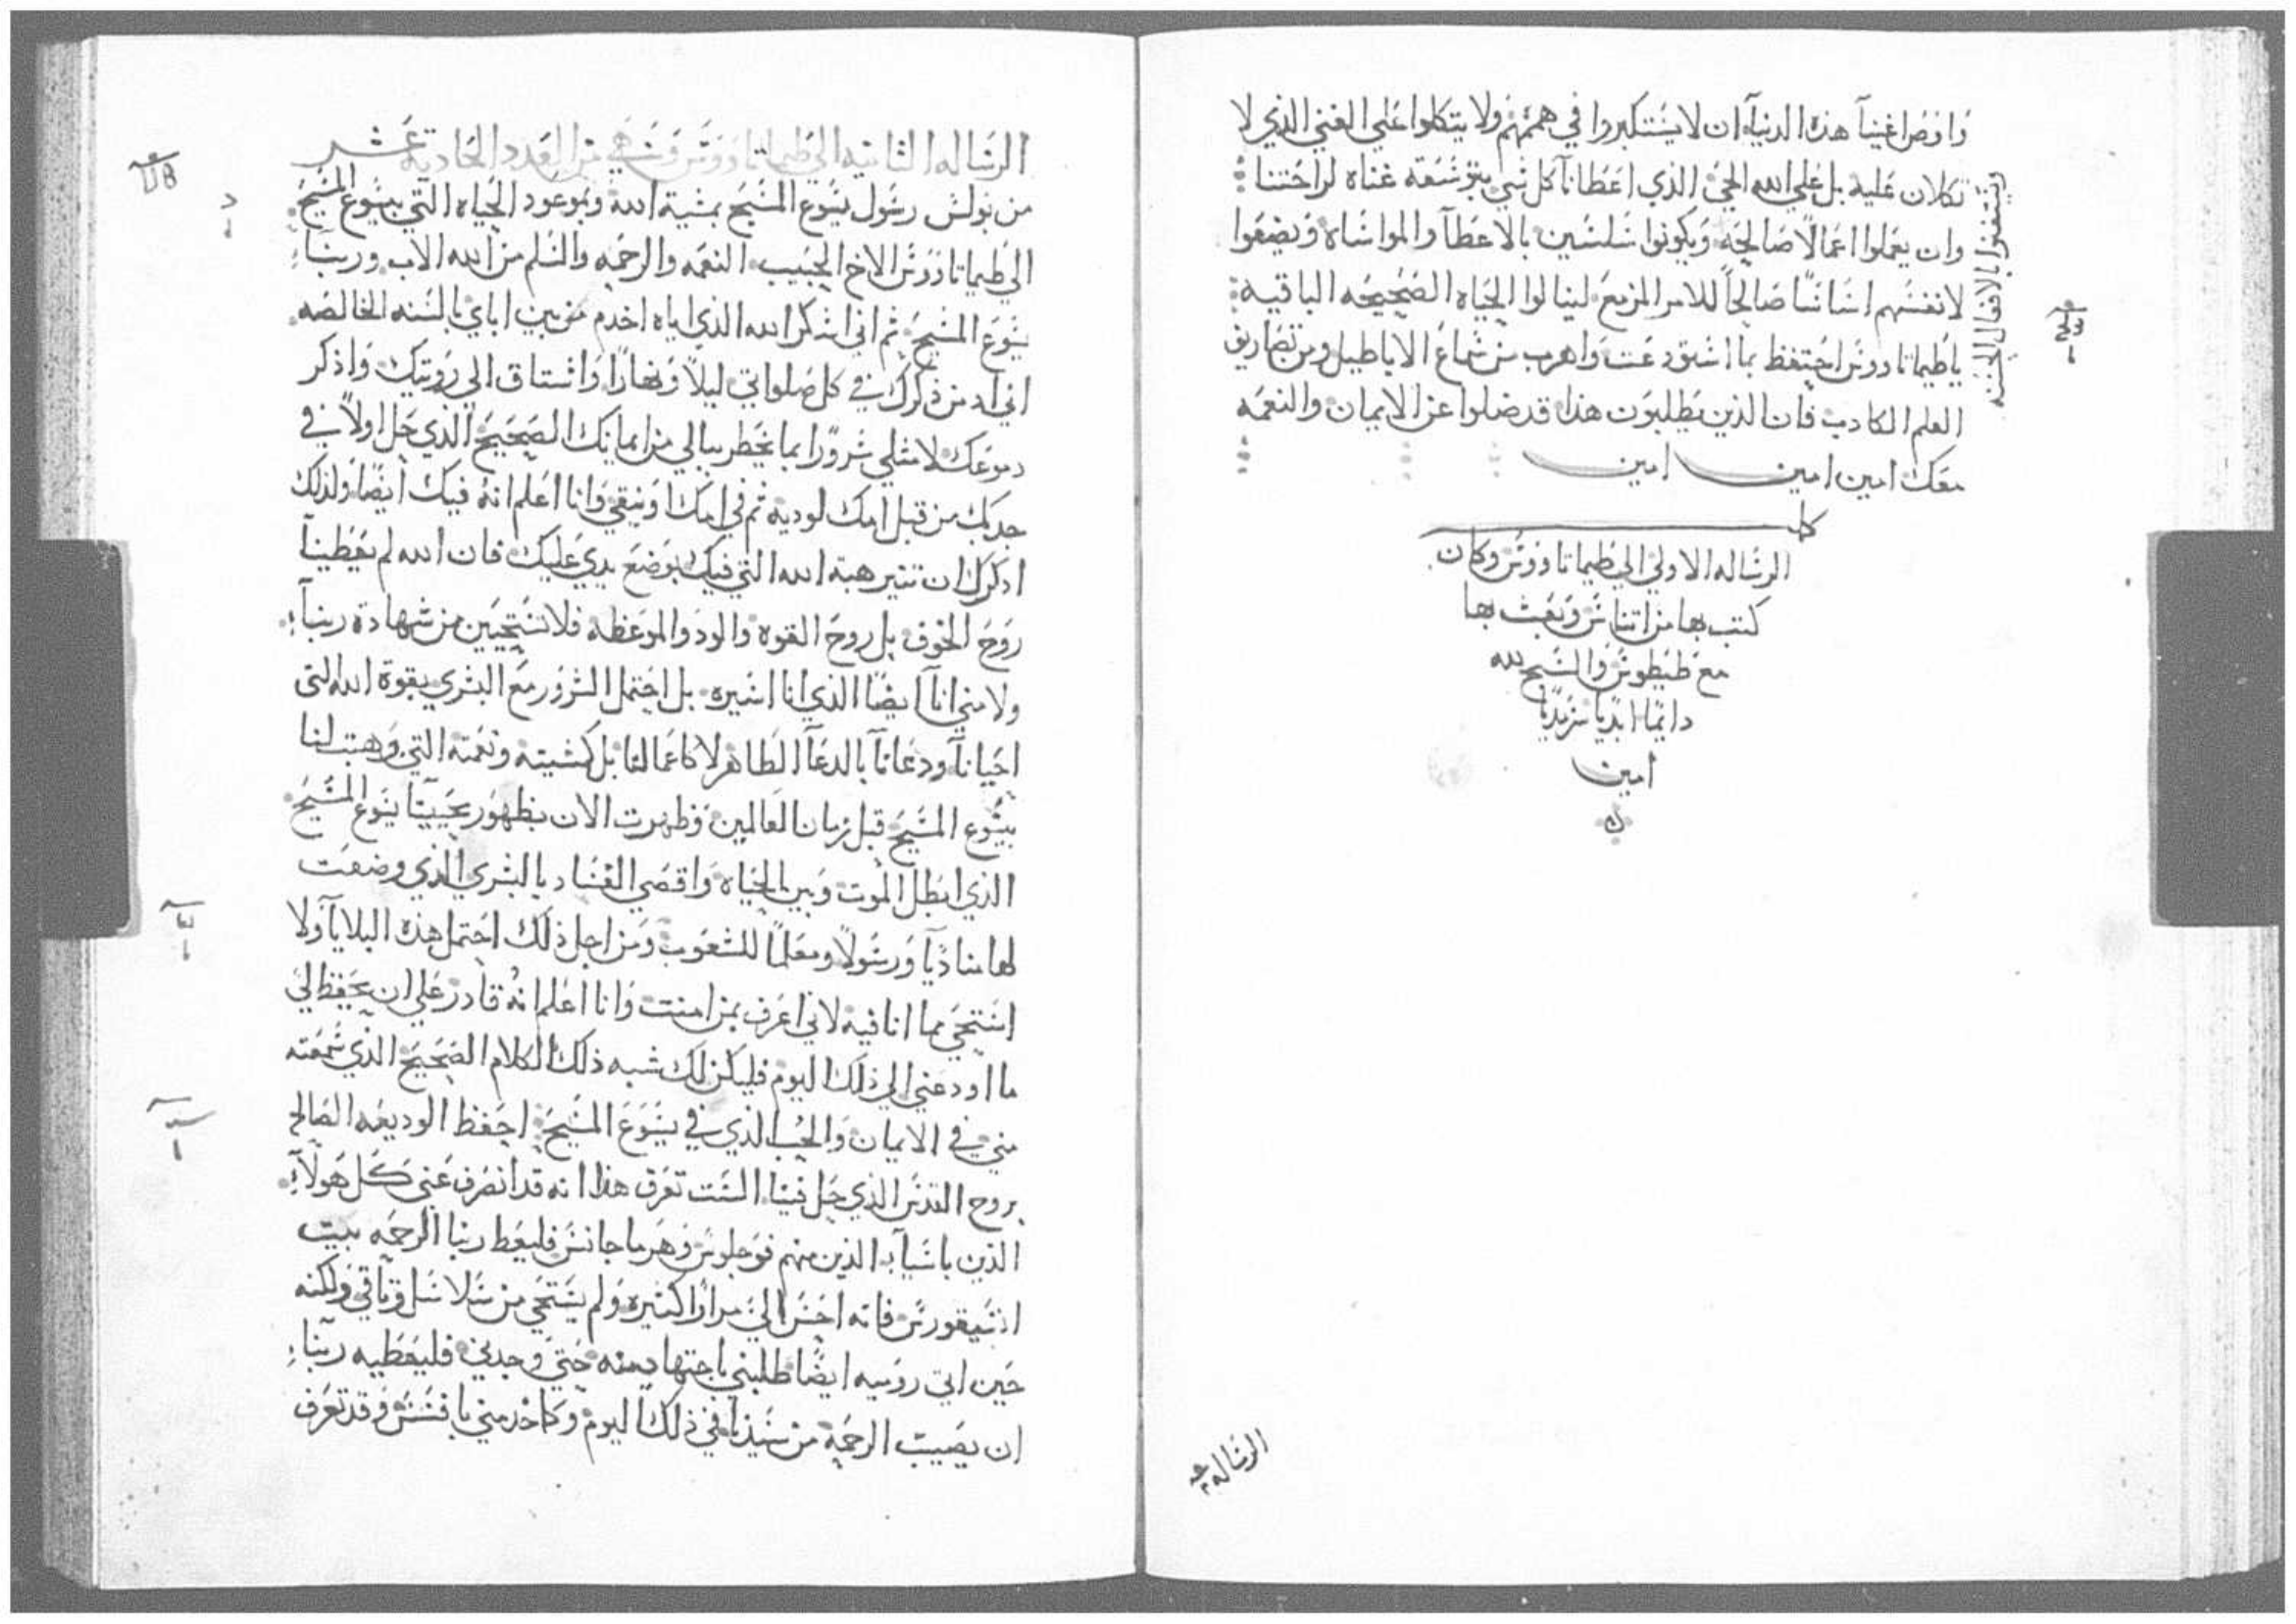 واوص اغنيآ هذه الدنيآ ان لا يستكبروا في هممهم ولا يتكلوا علي الغني الذي لا
تكلان عليه بل علي الله الحي الذي اعطانا كل شي بتوسعة غناه لراحتنا
وان يعملوا اعمالًا صالحه ويكونوا سلسين بالاعطآ والمواساه ويضعوا
لانفسهم اساسًا صالحاً للامر المزمع لينالوا الحياه الصحيحه الباقيه
ياطيماثاوس احتفظ بما استودعت واهرب من سماع الاباطيل ومن تصاريف
العلم الكادب فان الذين يطلبون هذا قد ضلوا عن الايمان والنعمه
معك امين امين امين
ويستغنوا بالافعال الحسنه
كل
الرساله الاولي الي طيماثاوس وكان
كتب بها من اتناس وبعث بها
مع طيطوس والسبح لله
دايمًا ابديًا سرمديًا
امين
الرساله
الرساله الثانيه الي طيماثاوس وهي من العدد الحادية عشر
من بولس رسول يسوع المسيح بمشية الله وبموعود الحياه التي بيسوع المسيح
الي طيماثاوس الاخ الحبيب النعمه والرحمه والسلم من الله الاب وربنا
يسوع المسيح ثم اني اشكر الله الذي اياه اخدم من بين اباي بالسنه الخالصه
اني ادمن ذكرك في كل صلواتي ليلًا ونهارًا واشتاق الي رويتك واذكر
دموعك لامتلي سرورًا بما يخطر ببالي من ايمانك الصحيح الذي حل اولًا في
جدتك من قبل امك لودية ثم في امك اونيقي وانا اعلم انه فيك ايضًا ولذلك
اذكرك ان تثير هبة الله التي فيك بوضع يدي عليك فان الله لم يعطينآ
روح الخوف بل روح القوه والود والموعظه فلا تستحيين من شهادة ربنآ
ولا مني انا ايضًا الذي انا اسيره بل احتمل الشرور مع البشري بقوة الله التي
احيانآ ودعانآ بالدعآ الطاهر لا كاعمالنا بل كمشيته ونعمته التي وهبت لنا
بيسوع المسيح قبل زمان العالمين وظهرت الان بظهور محيينا يسوع المسيح
الذي ابطل الموت وبين الحياه واقصي الفساد بالبشري الذي وضعت
لها مناديًا ورسولًا ومعلمًا للشعوب ومن اجل ذلك احتمل هذه البلايآ ولا
استحي مما انا فيه لاني اعرف بمن امنت وانا اعلم انه قادر علي ان يحفظ لي
ما اودعني الي ذلك اليوم فليكن لك شبه ذلك الكلام الصحيح الذي سمعته
مني في الايمان والحب الذي في يسوع المسيح احفظ الوديعه الصالح
بروح القدس الذي حل فينا الست تعرف هذا انه قد انصرف عني كل هولآء
الذين باسيآ الذين منهم فوجلوس وهرماجانس فليعط ربنا الرحمه بيت
انسيفورس فانه احسن الي مرارًا كثيره ولم يستحي من سلاسل وثاقي ولكنه
حين اتي روميه ايضًا طلبني باجتهاد منه حتي وجدني فليعطيه ربنا
ان يصيب الرحمة من سيدنا في ذلك اليوم وكما خدمني بافسس وقد تعرف